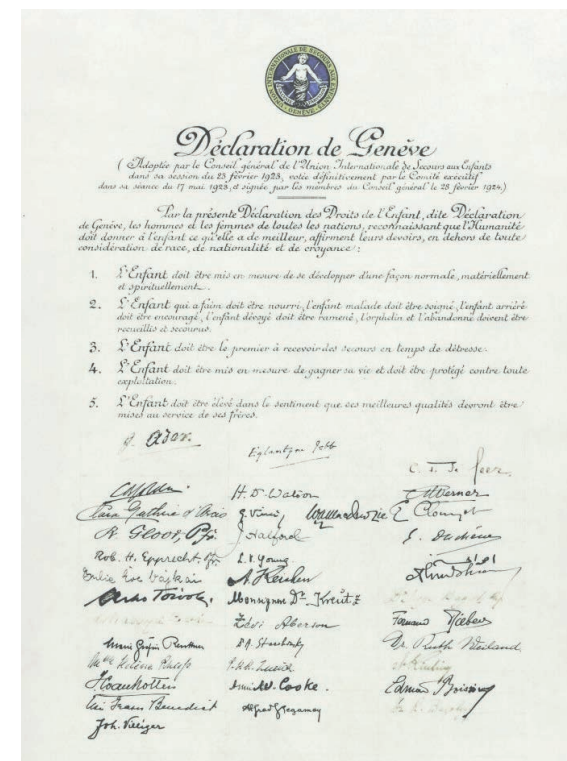 UNION INTERNATIONALE DE SECOURS AUX ENFANTS · GENÈVE
Déclaration de Genève
(Adoptée par le Conseil général de l'Union Internationale de Secours aux Enfants
dans sa session du 23 février 1923, votée définitivement par le Comité exécutif
dans sa séance du 17 mai 1923, et signée par les membres du Conseil général le 28 février 1924.)
Par la présente Déclaration des Droits de l'Enfant, dite Déclaration
de Genève, les hommes et les femmes de toutes les nations, reconnaissant que l'Humanité
doit donner à l'enfant ce qu'elle a de meilleur, affirment leurs devoirs, en dehors de toute
considération de race, de nationalité et de croyance:
1. L'Enfant doit être mis en mesure de se développer d'une façon normale, matériellement
et spirituellement.
2. L'Enfant qui a faim doit être nourri, l'enfant malade doit être soigné, l'enfant arriéré
doit être encouragé, l'enfant dévoyé doit être ramené, l'orphelin et l'abandonné doivent être
recueillis et secourus.
3. L'Enfant doit être le premier à recevoir des secours en temps de détresse.
4. L'Enfant doit être mis en mesure de gagner sa vie et doit être protégé contre toute
exploitation.
5. L'Enfant doit être élevé dans le sentiment que ses meilleures qualités devront être
mises au service de ses frères.
G. Ador.
Eglantyne Jebb
H. D. Watson
Werner
Clouzot
A. Gloor, Pfr.
J. Halford
Rob. H. Epprecht, Pfr.
L. B. Young
Julie Eve Vajkai
Arno Toivola
Monsignor Dr. Kreutz
Aberson
Dr. Ruth Weiland
Hélène
W. Cooke.
Edmond Boissier
Frans Benedict
Alfred Stegamey
Joh. Villiger